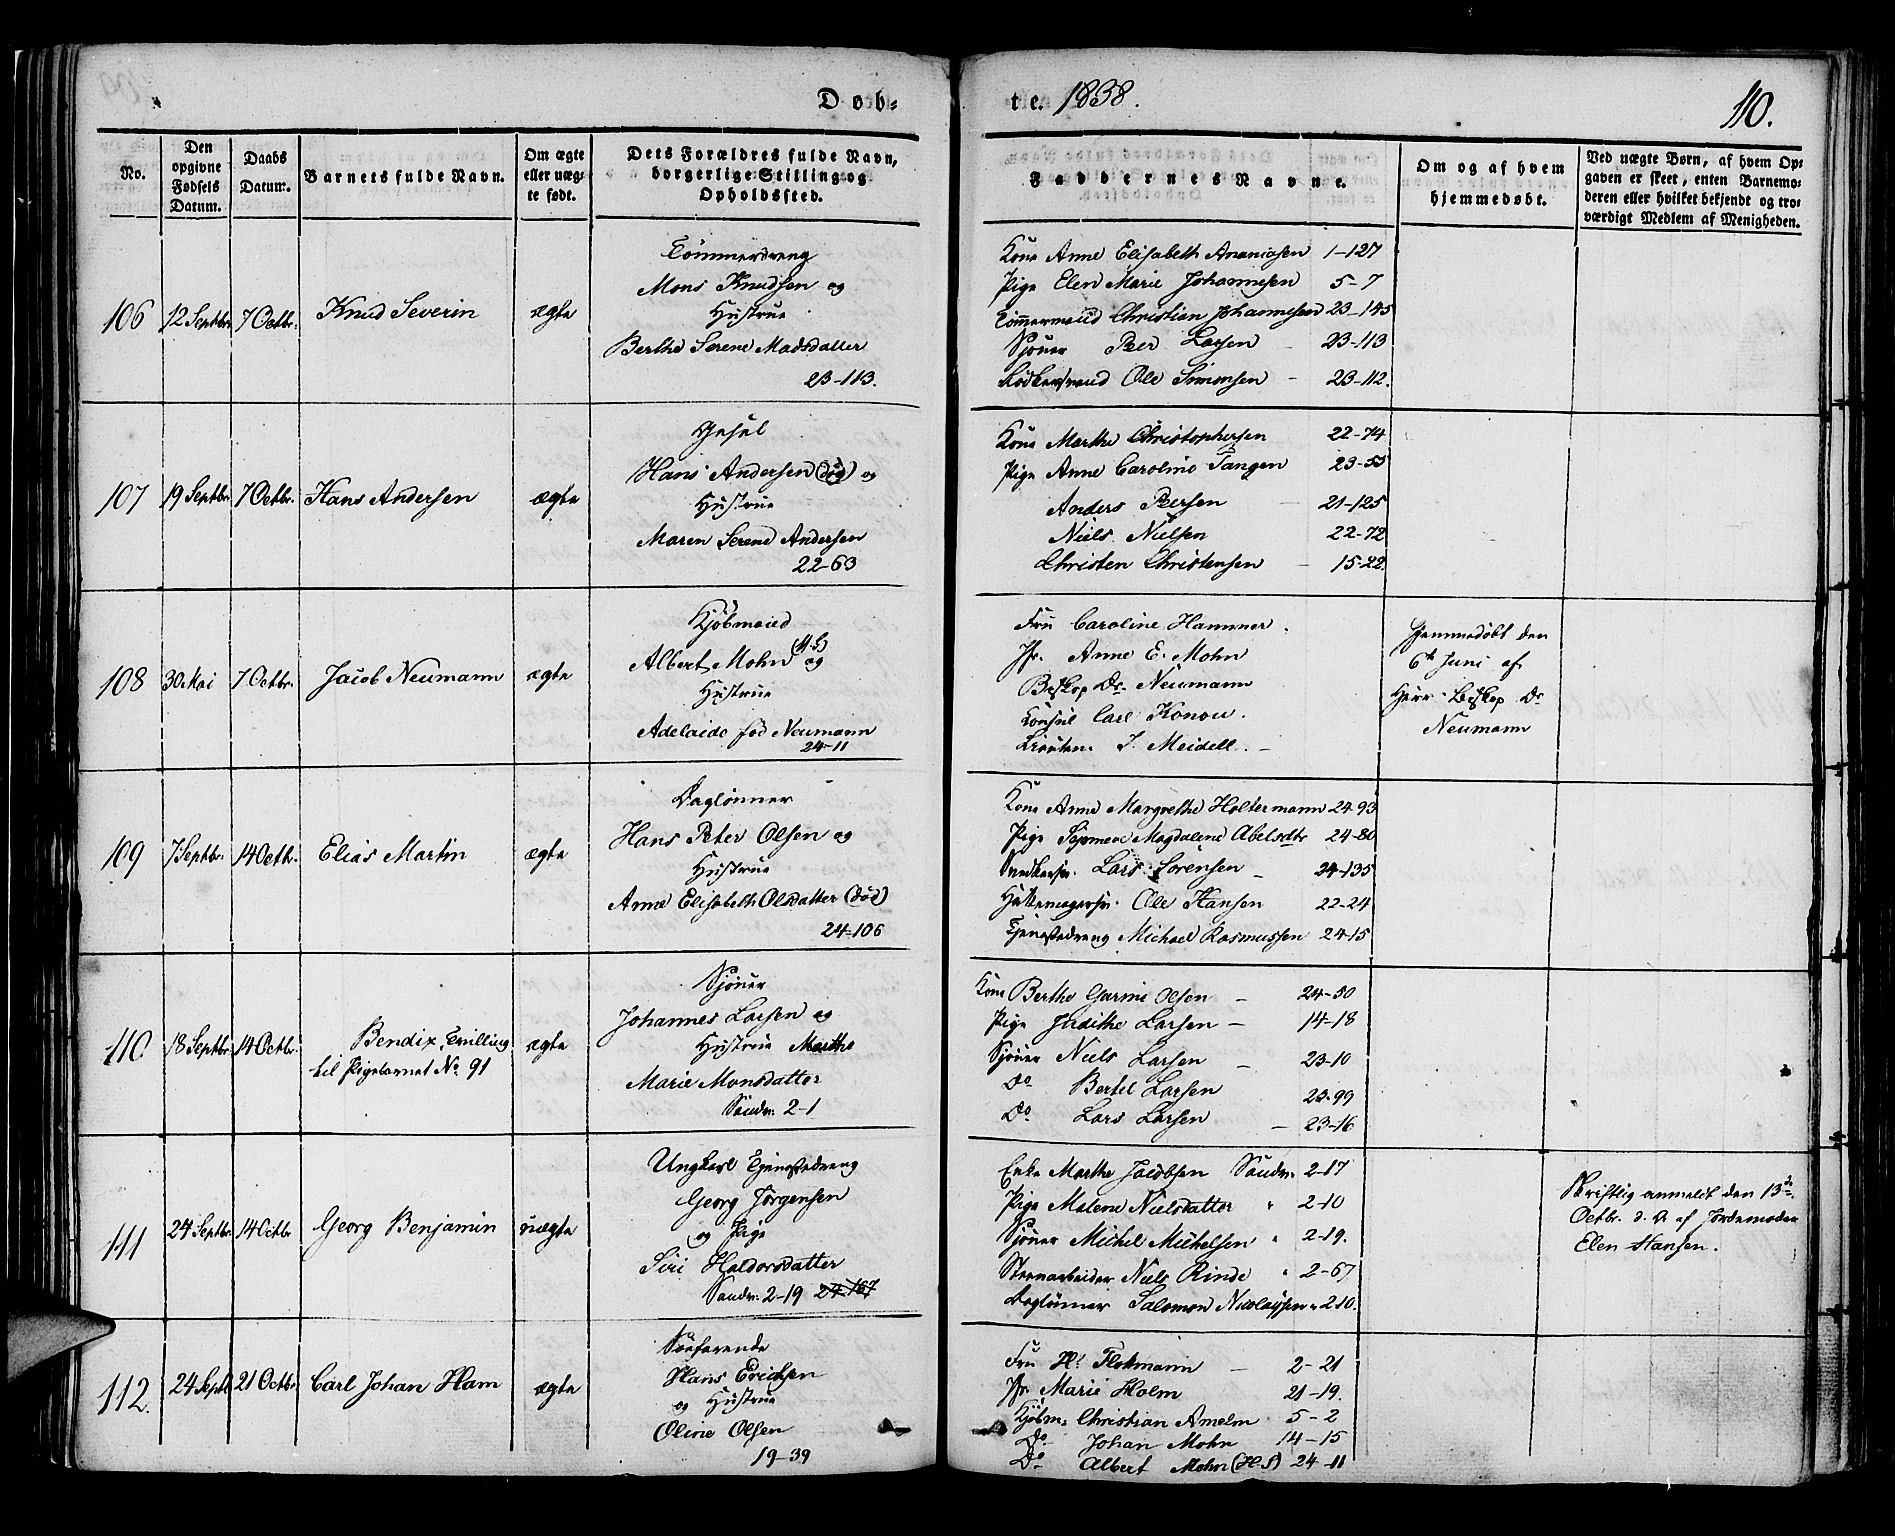 Døb-
te. 1838.
110.
No.
Den
opgivne
Fødsels
Datum.
Daabs
Datum.
Barnets fulde Navn.
Om ægte
eller uæg-
te født.
Dets Forældres fulde Navn,
borgerlige Stilling og
Opholdssted.
Faddernes Navne.
Om og af hvem
hjemmedøbt.
Ved uægte Børn, af hvem Op-
gaven er skeet, enten Barnemo-
deren eller hvilket bekjendt og tro-
værdigt Medlem af Menigheden.
106 12 Septbr. 7 Octbr. Knud Severin ægte
Tømmerdreng
Mons Knudsen og
Hustrue
Berthe Serene Madsdatter
23-113.
Kone Anne Elisabeth Ananiasen 1-127
Pige Elen Marie Johannesen 5-7
Tømmermand Christian Johannesen 23-145
Sjøuer Peer Larsen - 23-113
Ole Simonsen - 23-112.
107 19 Septbr. 7 Octbr. Hans Andersen ægte
Hans Andersen (død) og
Hustrue
Maren Serene Andersen
22-63
Kone Marthe Christophersen 22-74
Pige Anne Caroline Tangen 23-55
Anders Peersen 21-125
Niels Nielsen 22-72
Christen Christensen - 15-22
108 30 Mai 7 Octbr. Jacob Neumann ægte
Kjøbmand
Albert Mohn (H.S) og
Hustrue
Adelaide fød Neumann
24-11
Fru Caroline Hammer.
Jfr. Anne E. Mohn
Biskop Dr. Neumann
Konsul Carl Konow.
J. Meidell. -
Hjemmedøbt den
6te Juni af
Herr Biskop Dr
Neumann
109 7 Septbr. 14 Octbr. Elias Martin ægte
Daglønner
Hans Peter Olsen og
Hustrue
Anne Elisabeth Olsdatter (død)
24-106
Kone Anne Margrethe Holtermann 24-93
Pige Magdalene Abelsdtr 24-80
Snedkersv. Lars Sørensen - 24-135
Hattemagersv. Ole Hansen 22-24
Tjenestedreng Michael Rasmussen 24-15
110 18 Septbr. 14 Octbr. Bendix, Tvilling
til Pigebarnet No. 91
ægte
Sjøuer
Johannes Larsen og
Hustrue Marthe
Marie Monsdatter
Sandv. 2-1
Kone Berthe Olsen - 24-50
Pige Judithe Larsen - 14-18
Sjøuer Niels Larsen - 23-10
Do Bertel Larsen 23-99
Do. Lars Larsen - 23-16
111 24 Septbr. 14 Octbr Georg Benjamin uægte
Ungkarl Tjenestedreng
Georg Jørgensen
og Pige
Siri Haldorsdatter
Sandv. 2-19 24-167
Enke Marthe Jacobsen Sandv. 2-17
Pige Malene Nielsdatter " 2-10
Sjøuer Michel Michelsen " 2-19.
Steenarbeider Niels Rinde " 2-67
Daglønner Salomon Nicolaysen " 210.
Skriftlig anmeldt den 13de
Octbr. d. A. af Jordemoder
Elen Hansen.
112. 24 Septb 21 Octbr. Carl Johan Ham ægte
Søefarende
Hans Ericksen
og Hustrue
Oline Olsen
19-39
Fru H. - 2-21
Jfr. Marie Holm 21-19.
Kjøbm. Christian Amelm 5-2
Do. Johan Mohn 14-15
Do. Albert Mohn (H.S) 24-11